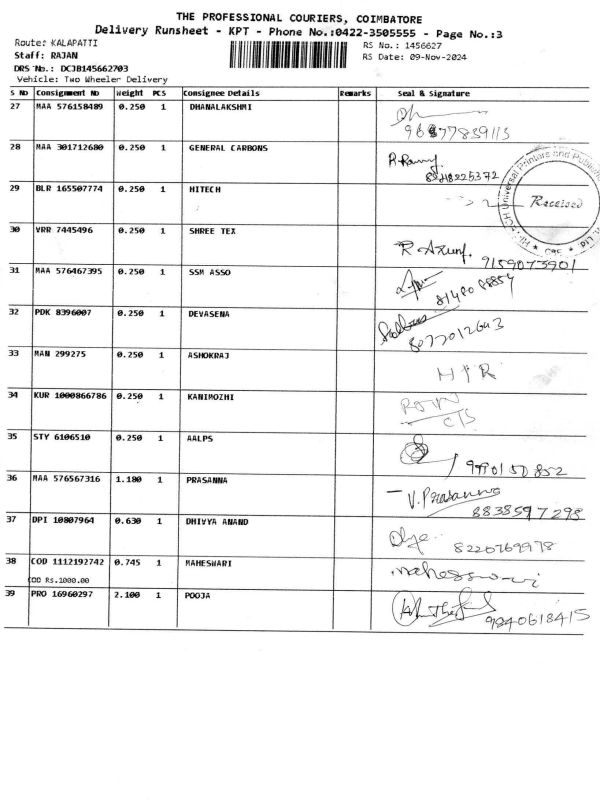 THE PROFESSIONAL COURIERS, COIMBATORE
Delivery Runsheet - KPT - Phone No.:0422-3505555 - Page No.:3
Route: KALAPATTI
RS No.: 1456627
Staff: RAJAN
RS Date: 09-Nov-2024
DRS No.: DCJB145662703
Vehicle: Two Wheeler Delivery
S No Consignment No Weight PCS Consignee Details Remarks Seal & Signature
27 MAA 576158489 0.250 1 DHANALAKSHMI
28 MAA 301712680 0.250 1 GENERAL CARBONS
29 BLR 165507774 0.250 1 HITECH Received
30 VRR 7445496 0.250 1 SHREE TEX
9159073901
31 MAA 576467395 0.250 1 SSM ASSO
32 PDK 8396007 0.250 1 DEVASENA
8077012643
33 MAN 299275 0.250 1 ASHOKRAJ
34 KUR 1000866786 0.250 1 KANIMOZHI
35 STY 6106510 0.250 1 AALPS
36 MAA 576567316 1.180 1 PRASANNA V. Prasanna
8838597298
37 DPI 10807964 0.630 1 DHIVYA ANAND
8220769978
38 COD 1112192742 0.745 1 MAHESWARI
COD Rs.1000.00
39 PRO 16960297 2.100 1 POOJA
9840618415